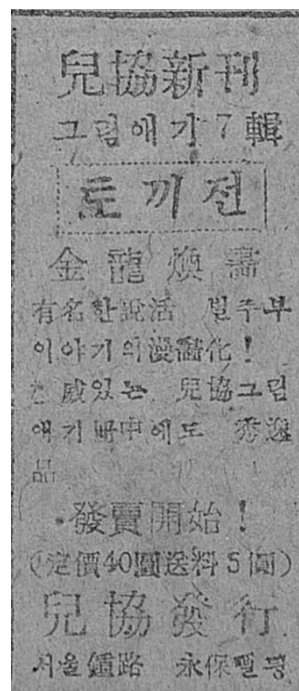 兒協新刊
그림얘기 7輯
토끼전
金龍煥畵
有名한說話 별주부
이야기의漫畵化!
權威있는 兒協그림
얘기冊中에도 秀逸
品
發賣開始!
(定價40圓送料5圓)
兒協發行
서울鍾路 永保삘딍